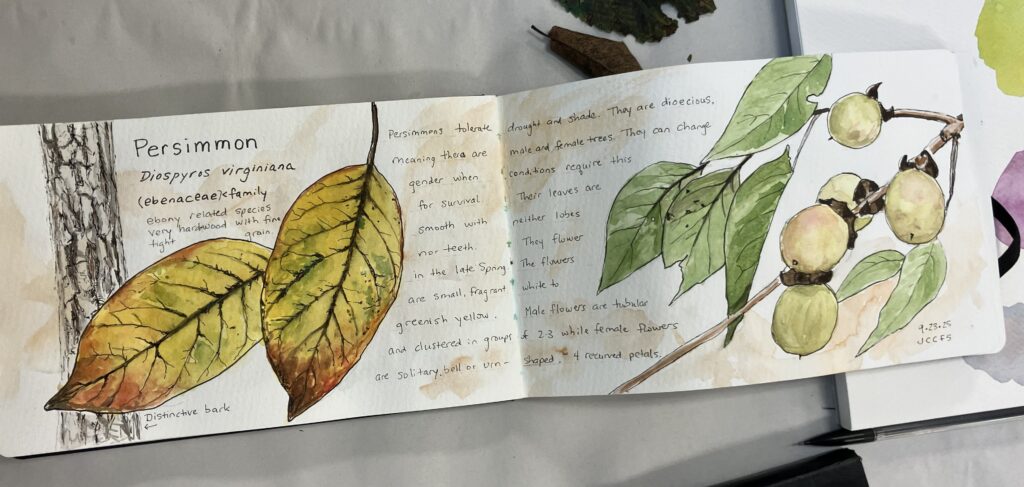 Persimmon
Diospyros virginiana
(ebenaceae)<family
ebony related species
very hardwood with fine
tight grain.
Persimmons tolerate drought and shade. They are dioecious,
meaning there are male and female trees. They can change
gender when conditions require this
for survival Their leaves are
smooth with neither lobes
nor teeth. They flower
in the late Spring. The flowers
are small, fragrant white to
greenish yellow. Male flowers are tubular
and clustered in groups of 2-3 while female flowers
are solitary, bell or urn- shaped. 4 recurved petals.
Distinctive bark
9-23-25
JCCFS